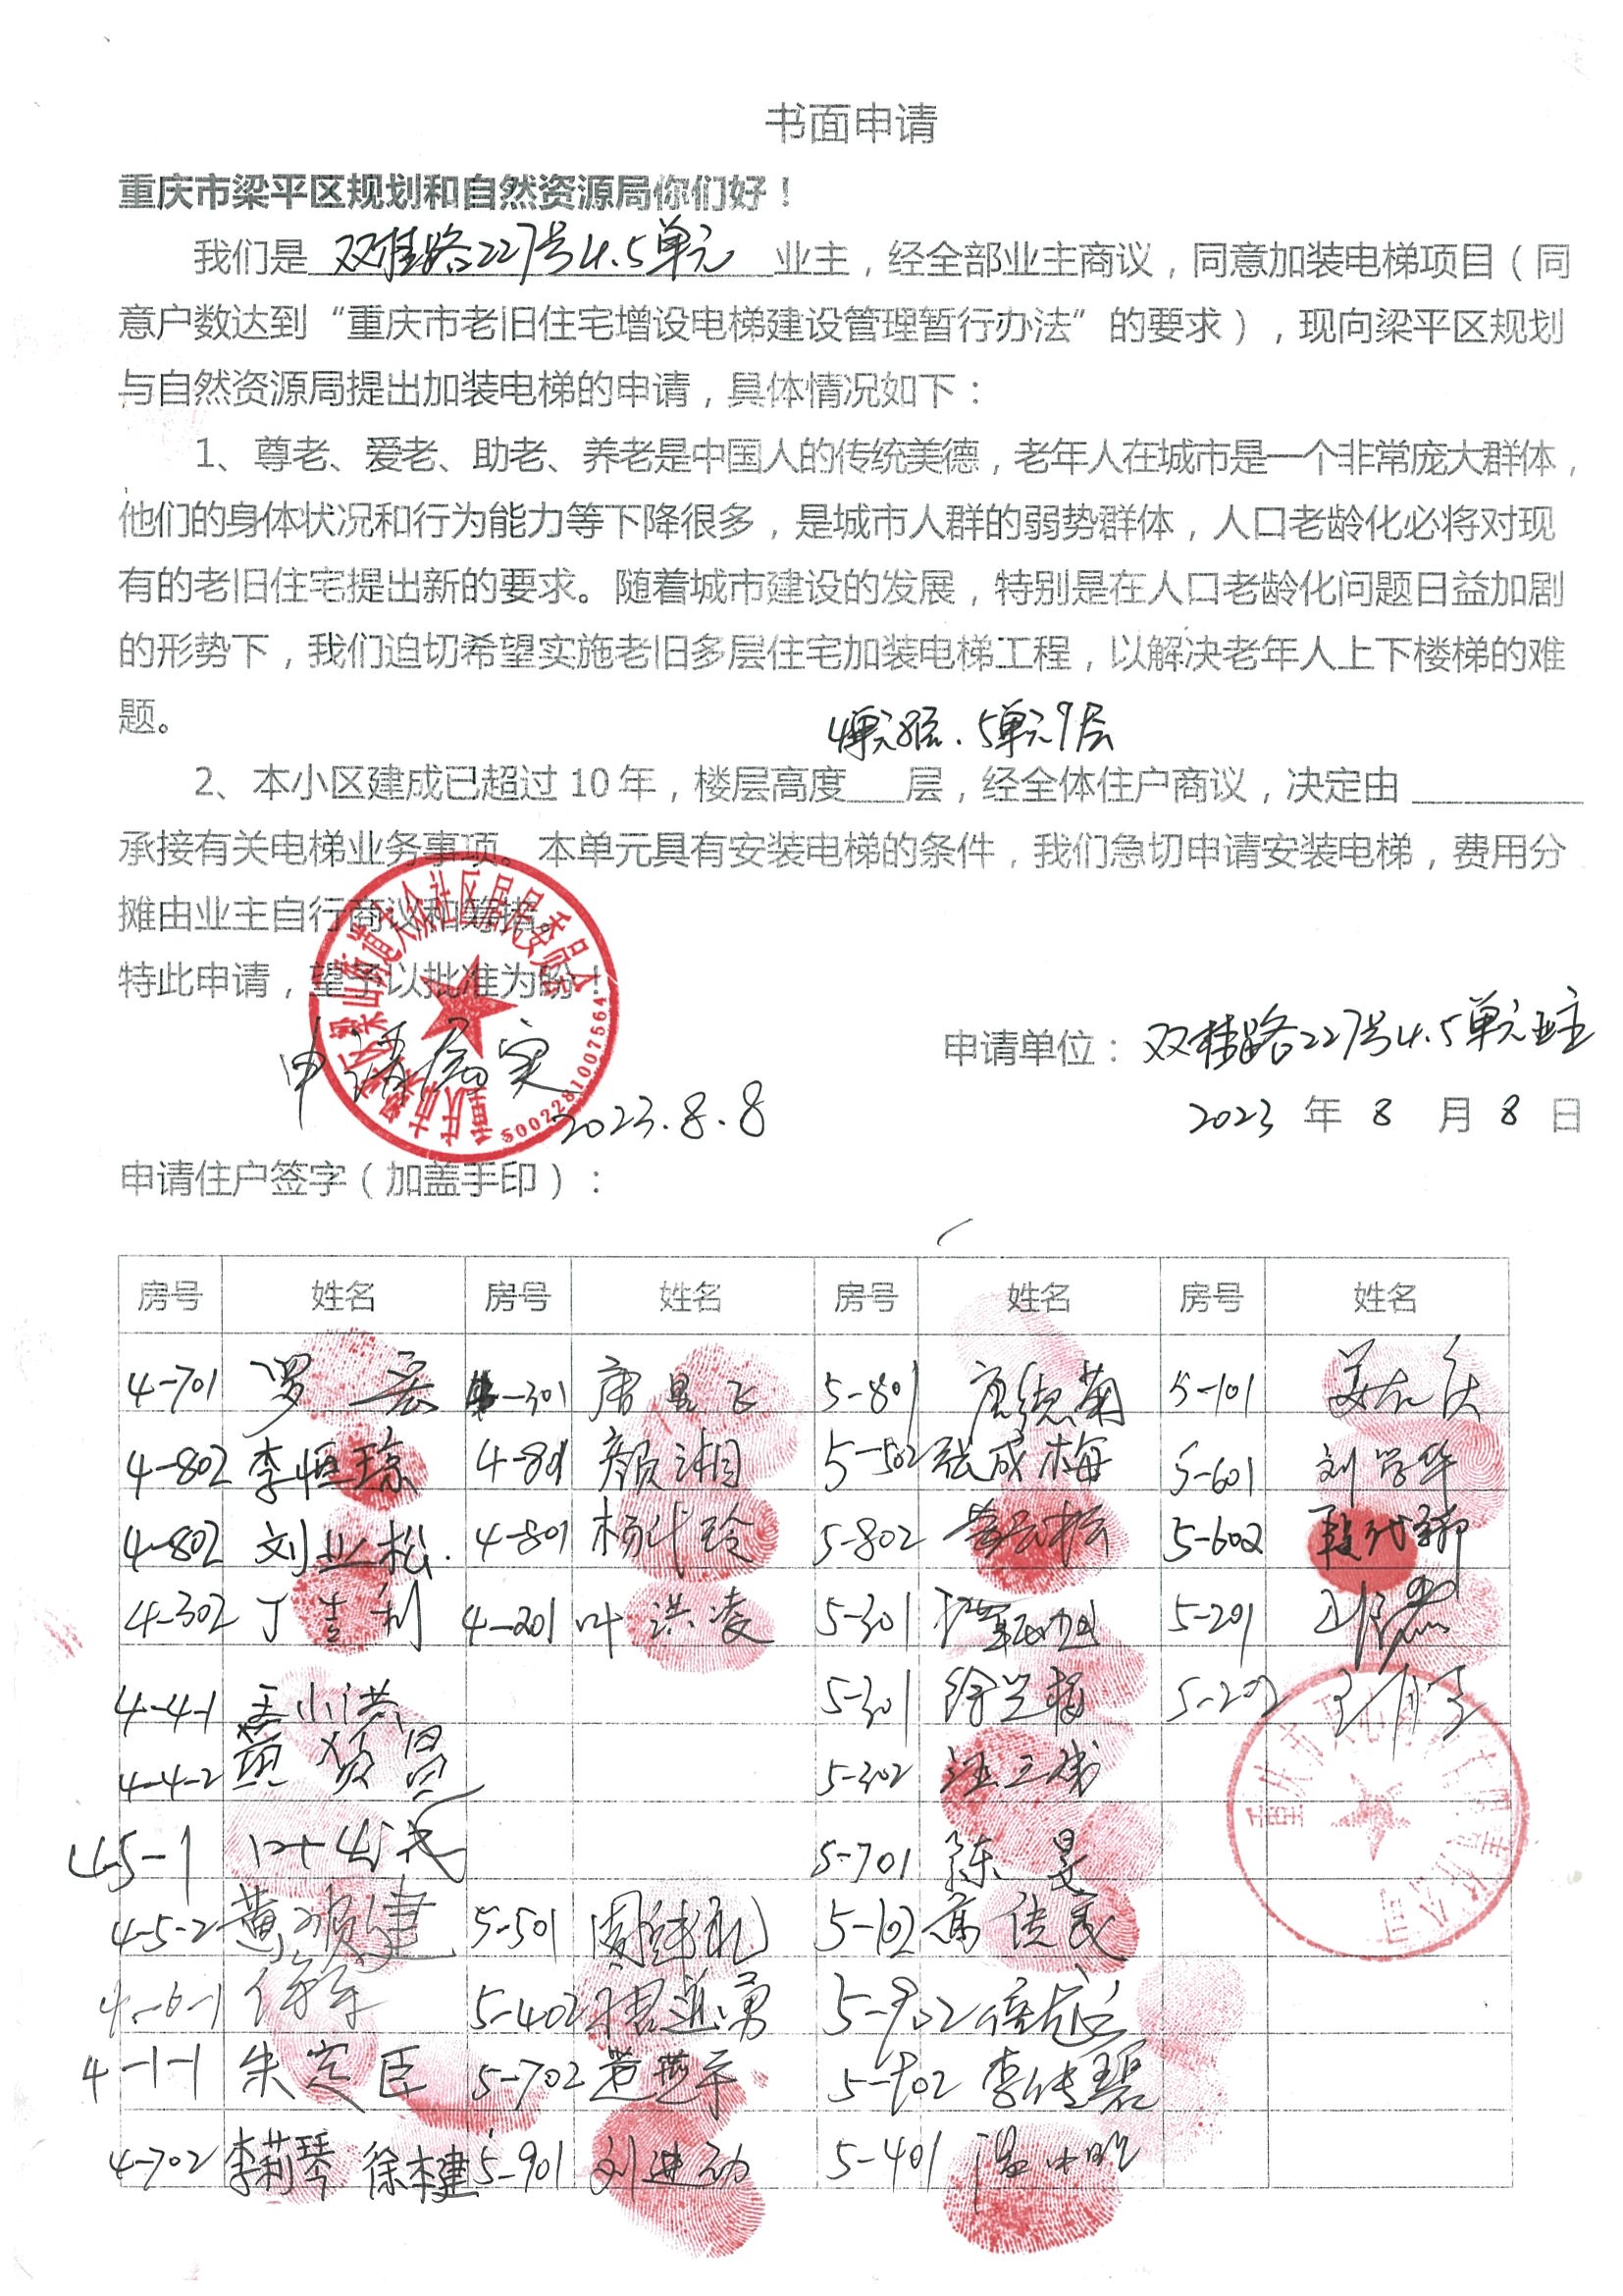 书面申请
重庆市梁平区规划和自然资源局你们好！
我们是 双桂路227号4.5单元 业主，经全部业主商议，同意加装电梯项目（同
意户数达到“重庆市老旧住宅增设电梯建设管理暂行办法”的要求），现向梁平区规划
与自然资源局提出加装电梯的申请，具体情况如下：
1、尊老、爱老、助老、养老是中国人的传统美德，老年人在城市是一个非常庞大群体，
他们的身体状况和行为能力等下降很多，是城市人群的弱势群体，人口老龄化必将对现
有的老旧住宅提出新的要求。随着城市建设的发展，特别是在人口老龄化问题日益加剧
的形势下，我们迫切希望实施老旧多层住宅加装电梯工程，以解决老年人上下楼梯的难
题。
4单元8层、5单元9层
2、本小区建成已超过10年，楼层高度___层，经全体住户商议，决定由 ________
承接有关电梯业务事项。本单元具有安装电梯的条件，我们急切申请安装电梯，费用分
摊由业主自行商议和筹措。
特此申请，望予以批准为盼！
重庆市梁平区梁山街道大众社区居民委员会
5002281007564
申请属实
2023.8.8
申请单位：双桂路227号4.5单元业主
2023 年 8 月 8 日
申请住户签字（加盖手印）：
房号 姓名 房号 姓名 房号 姓名 房号 姓名
4-701 -301 5-801 唐德菊 5-101
4-802 李恒琼 4-801 颜湘 5-502 张成梅 5-601 刘学华
4-802 刘业松 4-801 杨代玲 5-802 5-602
4-302 丁吉利 4-201 叶洪凌 5-301 5-201
4-4-1 孟小洪 5-301 徐兰梅 5-202
4-4-2 5-302
4-5-1 5-701 陈昱
4-5-2 黄顺建 5-501 5-102
4-6-1 5-402 周进勇 5-902
4-1-1 朱定臣 5-702 5-902 李传碧
4-702 李莉琴 徐本建 5-901 刘进动 5-401